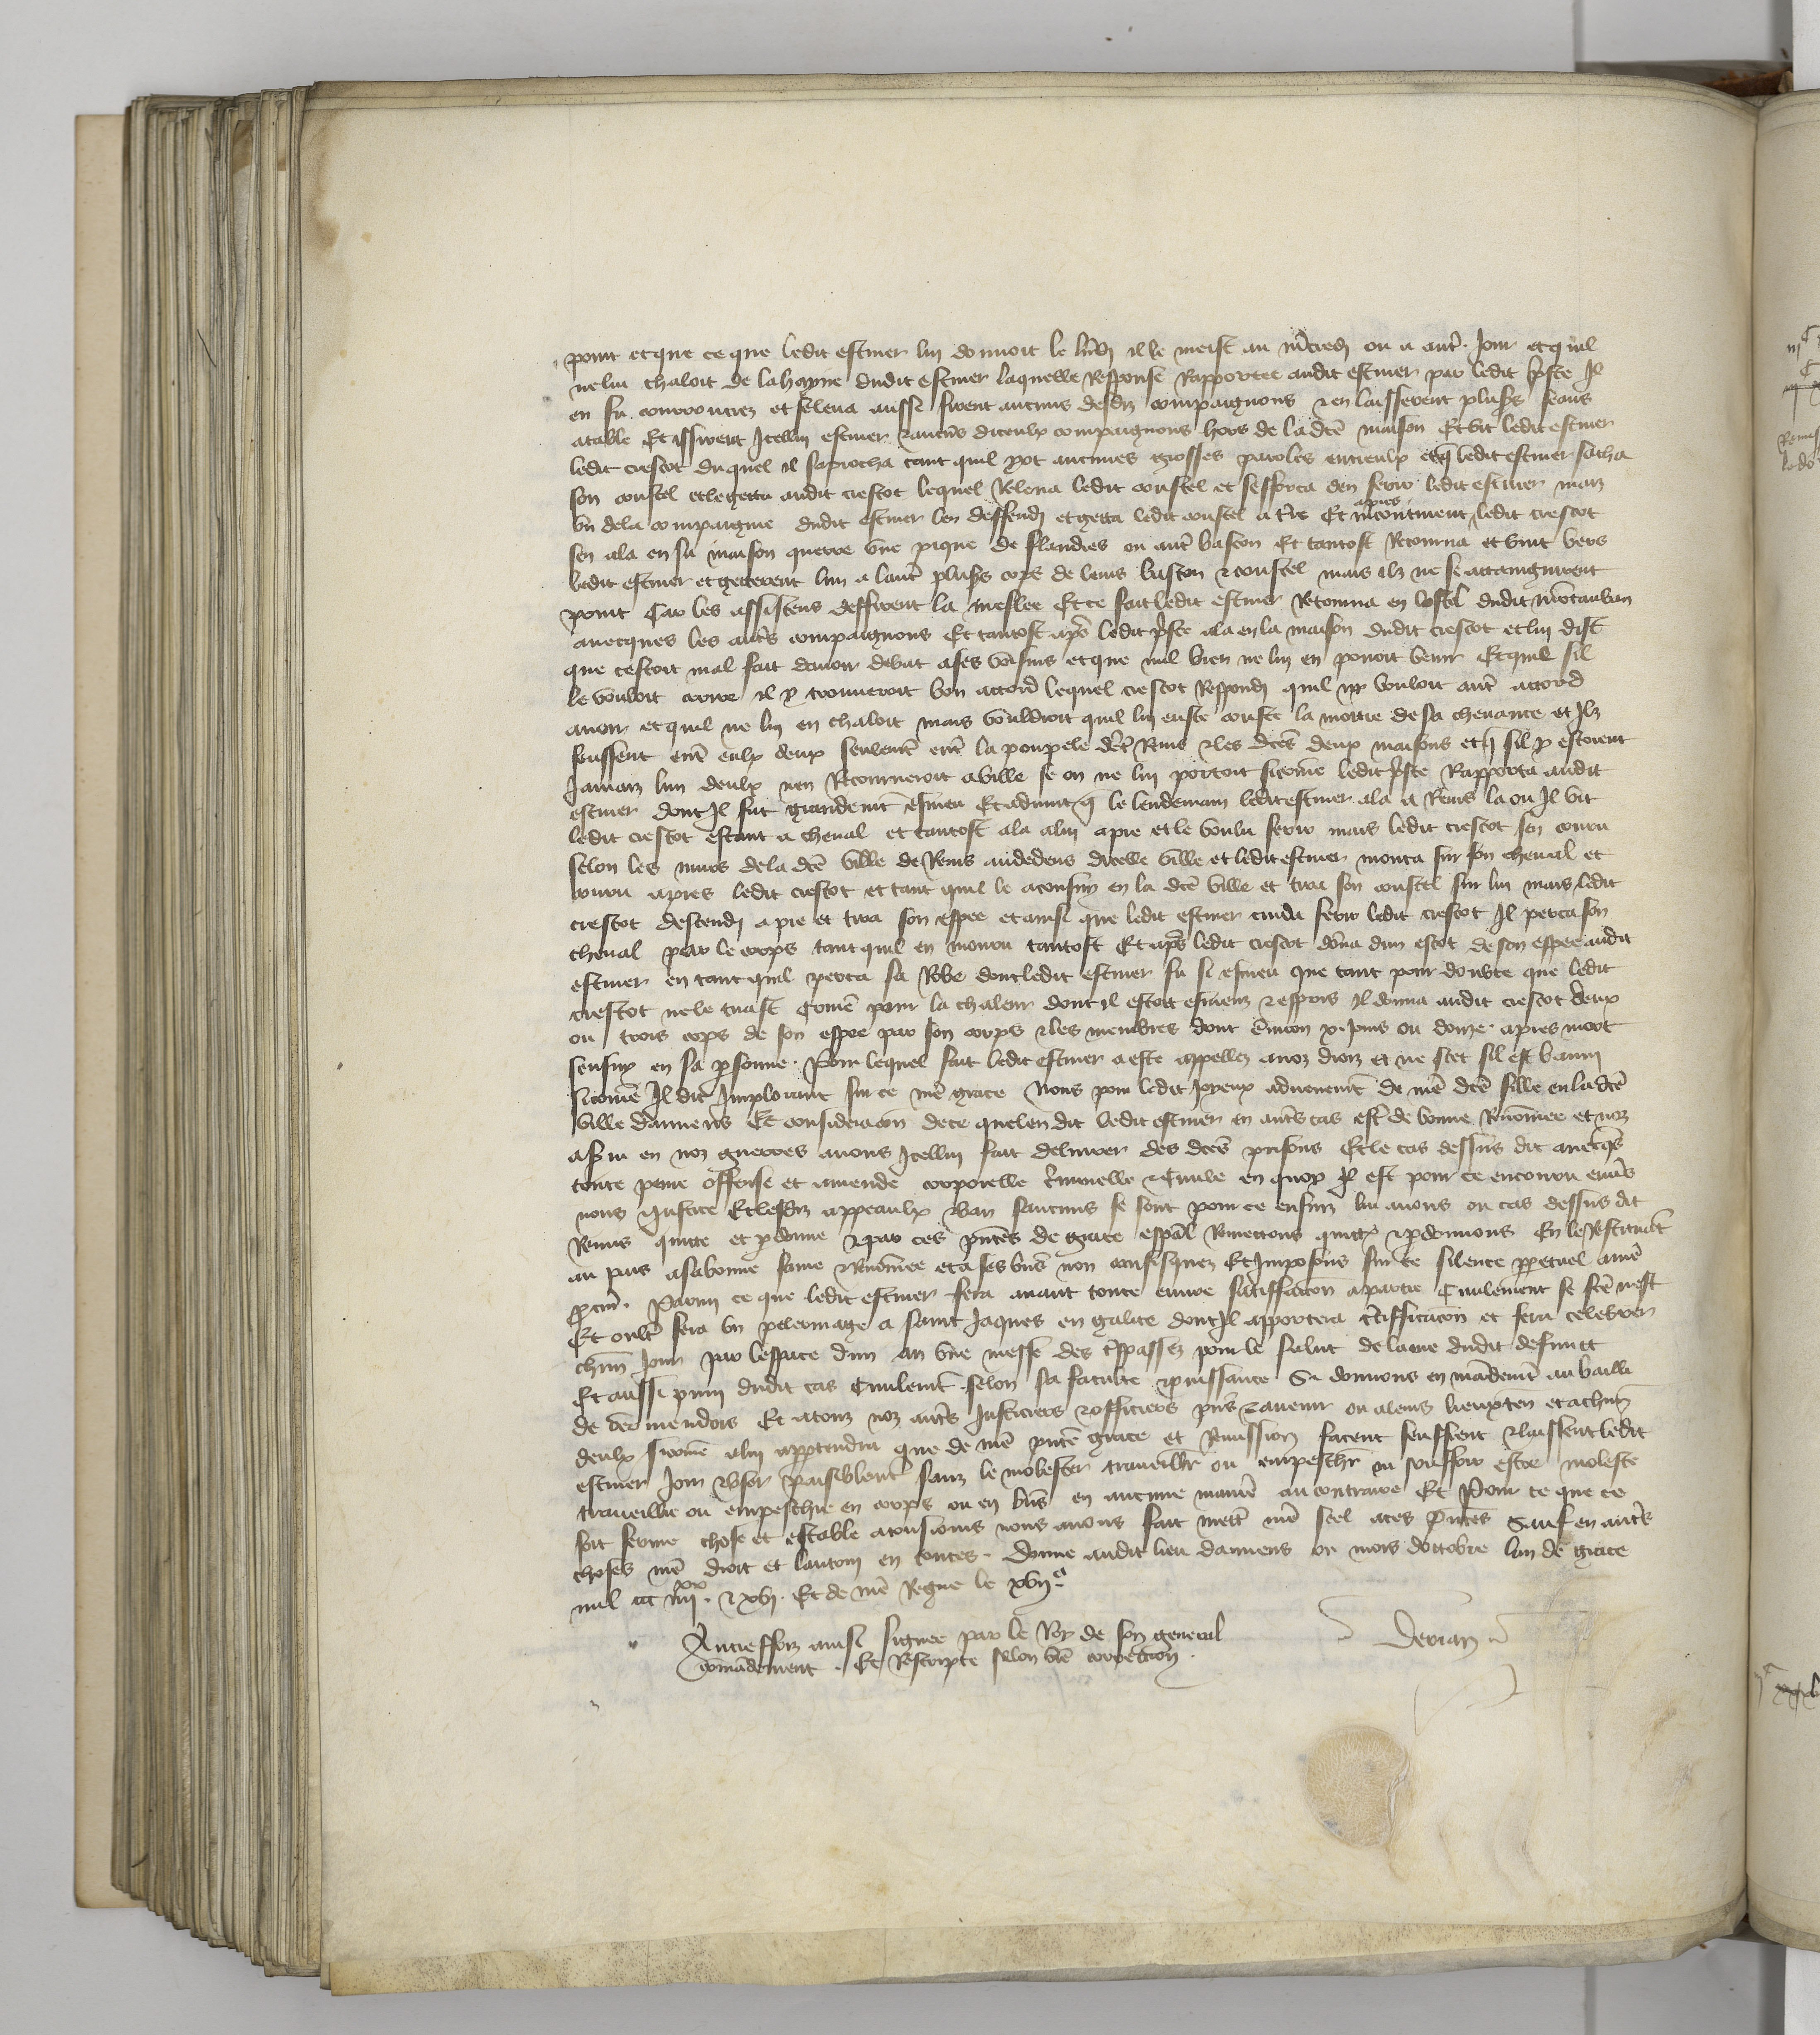 point et que ce que ledit estmer luy donnoit le lundj il le meist au mcredj ou a autr jour et quil
ne lui chaloit de la hayne dudit estmer laquelle Response Rapportee audit estmer par ledit prste Il
en fu courrouciez et se leva aussi firent aucuns desdiz compaignons & en laisserent plusrs seans
a table Et issirent Icellui estmer & aucuns diceulx compaignons hors de la dicte maison Et vit ledit estmer
ledit crescot duquel il saprocha tant quil yot aucunes grosses paroles entreulx et q ledit estmer sacha
son coustel et le getta audit crescot lequel Releva ledit coustel et sefforca den ferir ledit estmer maiz
un de la compaignie dudit estmer len deffendj et getta ledit coustel a tre Et incontinent apres ledit crescot
sen ala en sa maison querre une pique de flandres ou autr baston Et tantost Retourna et vint vers
ledit estmer et getterent lun a lautr plusrs cops de leurs baston & coustel mais ilz ne se attaignirent
point Car les assistens deffirent la meslee Et ce fait ledit estmer Retourna en lostel dudit montauban
avecques les autrs compaignons Et tantost apres ledit prste ala en la maison dudit crescot et luy dist
que cestoit mal fait davoir debat a ses voisins et que nul bien ne luy en povoit venir Et quil sil
le vouloit croire il y trouveroit bon accord lequel crescot Respondj quil ny vouloit autr accord
avoir et quil ne luy en chaloit mais vouldroit quil luy eust couste la moitie de sa chevance et Ilz
feussent entr eulx deux seulemt entr la poupele dict Reins & les dictes deux maisons et q sil y estoient
Jamaiz lun deulx nen Retourneroit a ville se on ne luy portoit sicome ledit prste Rapporta audit
estmer dont Il fut grandemt esmeu Et advint q le lendemain ledit estmer ala a Reins la ou Il vit
ledit crescot estant a cheval et tantost ala a luy a pie et le voulu ferir mais ledit crescot sen couru
selon les murs de la dicte ville de Reins au dedens dicelle ville et ledit estmer monta sur son cheval et
couru apres ledit crescot et tant quil le aconsuy en la dicte ville et tira son coustel sur luy mais ledit
crescot descendj a pie et tira son espee et ainsi que ledit estmer cuida ferir ledit crescot Il perca son
cheval par le corps tant quil en mouru tantost Et apres ledit crescot dona dun estoc de son espee audit
estmer en tant quil perca sa Robe dont ledit estmer fu si esmeu que tant pour doubte que ledit
crescot ne le tuast Come pour la chaleur dont il estoit esmeuz & espris Il donna audit crescot deux
ou trois cops de son espee par son corps & les membres dont environ x jours ou douze apres mort
sensuy en sa psonne Pour lequel fait ledit estmer a este appellez a noz droiz et ne scet sil est banny
sicome Il dit Implorant sur ce nre grace Nous pour ledit Joyeux advenemt de nre dicte fille en la dicte
ville damiens Et consideracon de ce quelen dit ledit estmer en autrs cas estr de bonne Renomee et noz
a svi en noz guerres avons Icelluy fait delivrer des dictes prisons Et le cas dessus dit avecqs
toute peine offense et amende corporelle criminelle & Civile en quoy Il est pour ce encouru envers
nous & Justice Et lesdiz appeaulx & ban saucuns se sont pour ce ensuiz luy avons ou cas dessus dit
Remis quitte et pdonne & par ces pntes de grace espal Remettons quittons & pdonnons En le Restituant
au pais a sa bonne fame & Renomee et a ses biens non confisquez Et Imposons sur ce silence ppetuel a nre
pcur Parmi ce que ledit estmer fera avant toute euvre satisfaccon a partie Civilement se fcte nest
Et oultr fera un pelerinage a saint Jaques en galice dont Il apportera certifficacon et fera celebrer
chm Jour par lespace dun an une messe des trespassez pour le salut de lame dudit defunct
Et aussi puny dudit cas Civilemt selon sa faculte & puissance Si donnons en mandemt au bailli
de vermendois Et a touz noz autrs Justiciers & officiers pns & avenir ou a leurs lieuxten et a chm
deulx sicome a luy apptendra que de nre pnte grace et Remission facent seuffrent & laissent ledit
estmer Joir & user paisiblemt sanz le molester travaillier ou empeschr ni souffrir estre moleste
travaillie ou empeschie en corps ou en biens en aucune manie au contraire Et Pour ce que ce
soit ferme chose et estable a tousjours nous avons fait mettr nre scel a ces pntes Sauf en autrs
choses nre droit et lautruy en toutes Donne audit lieu damiens ou mois doctobre lan de grace
mil ccc iiii xx & xvj Et de nre Regne le xvij e
Autreffoiz ainsi signee par le Roy de son general
comandement Et Rescripte selon vre correccon
Derian